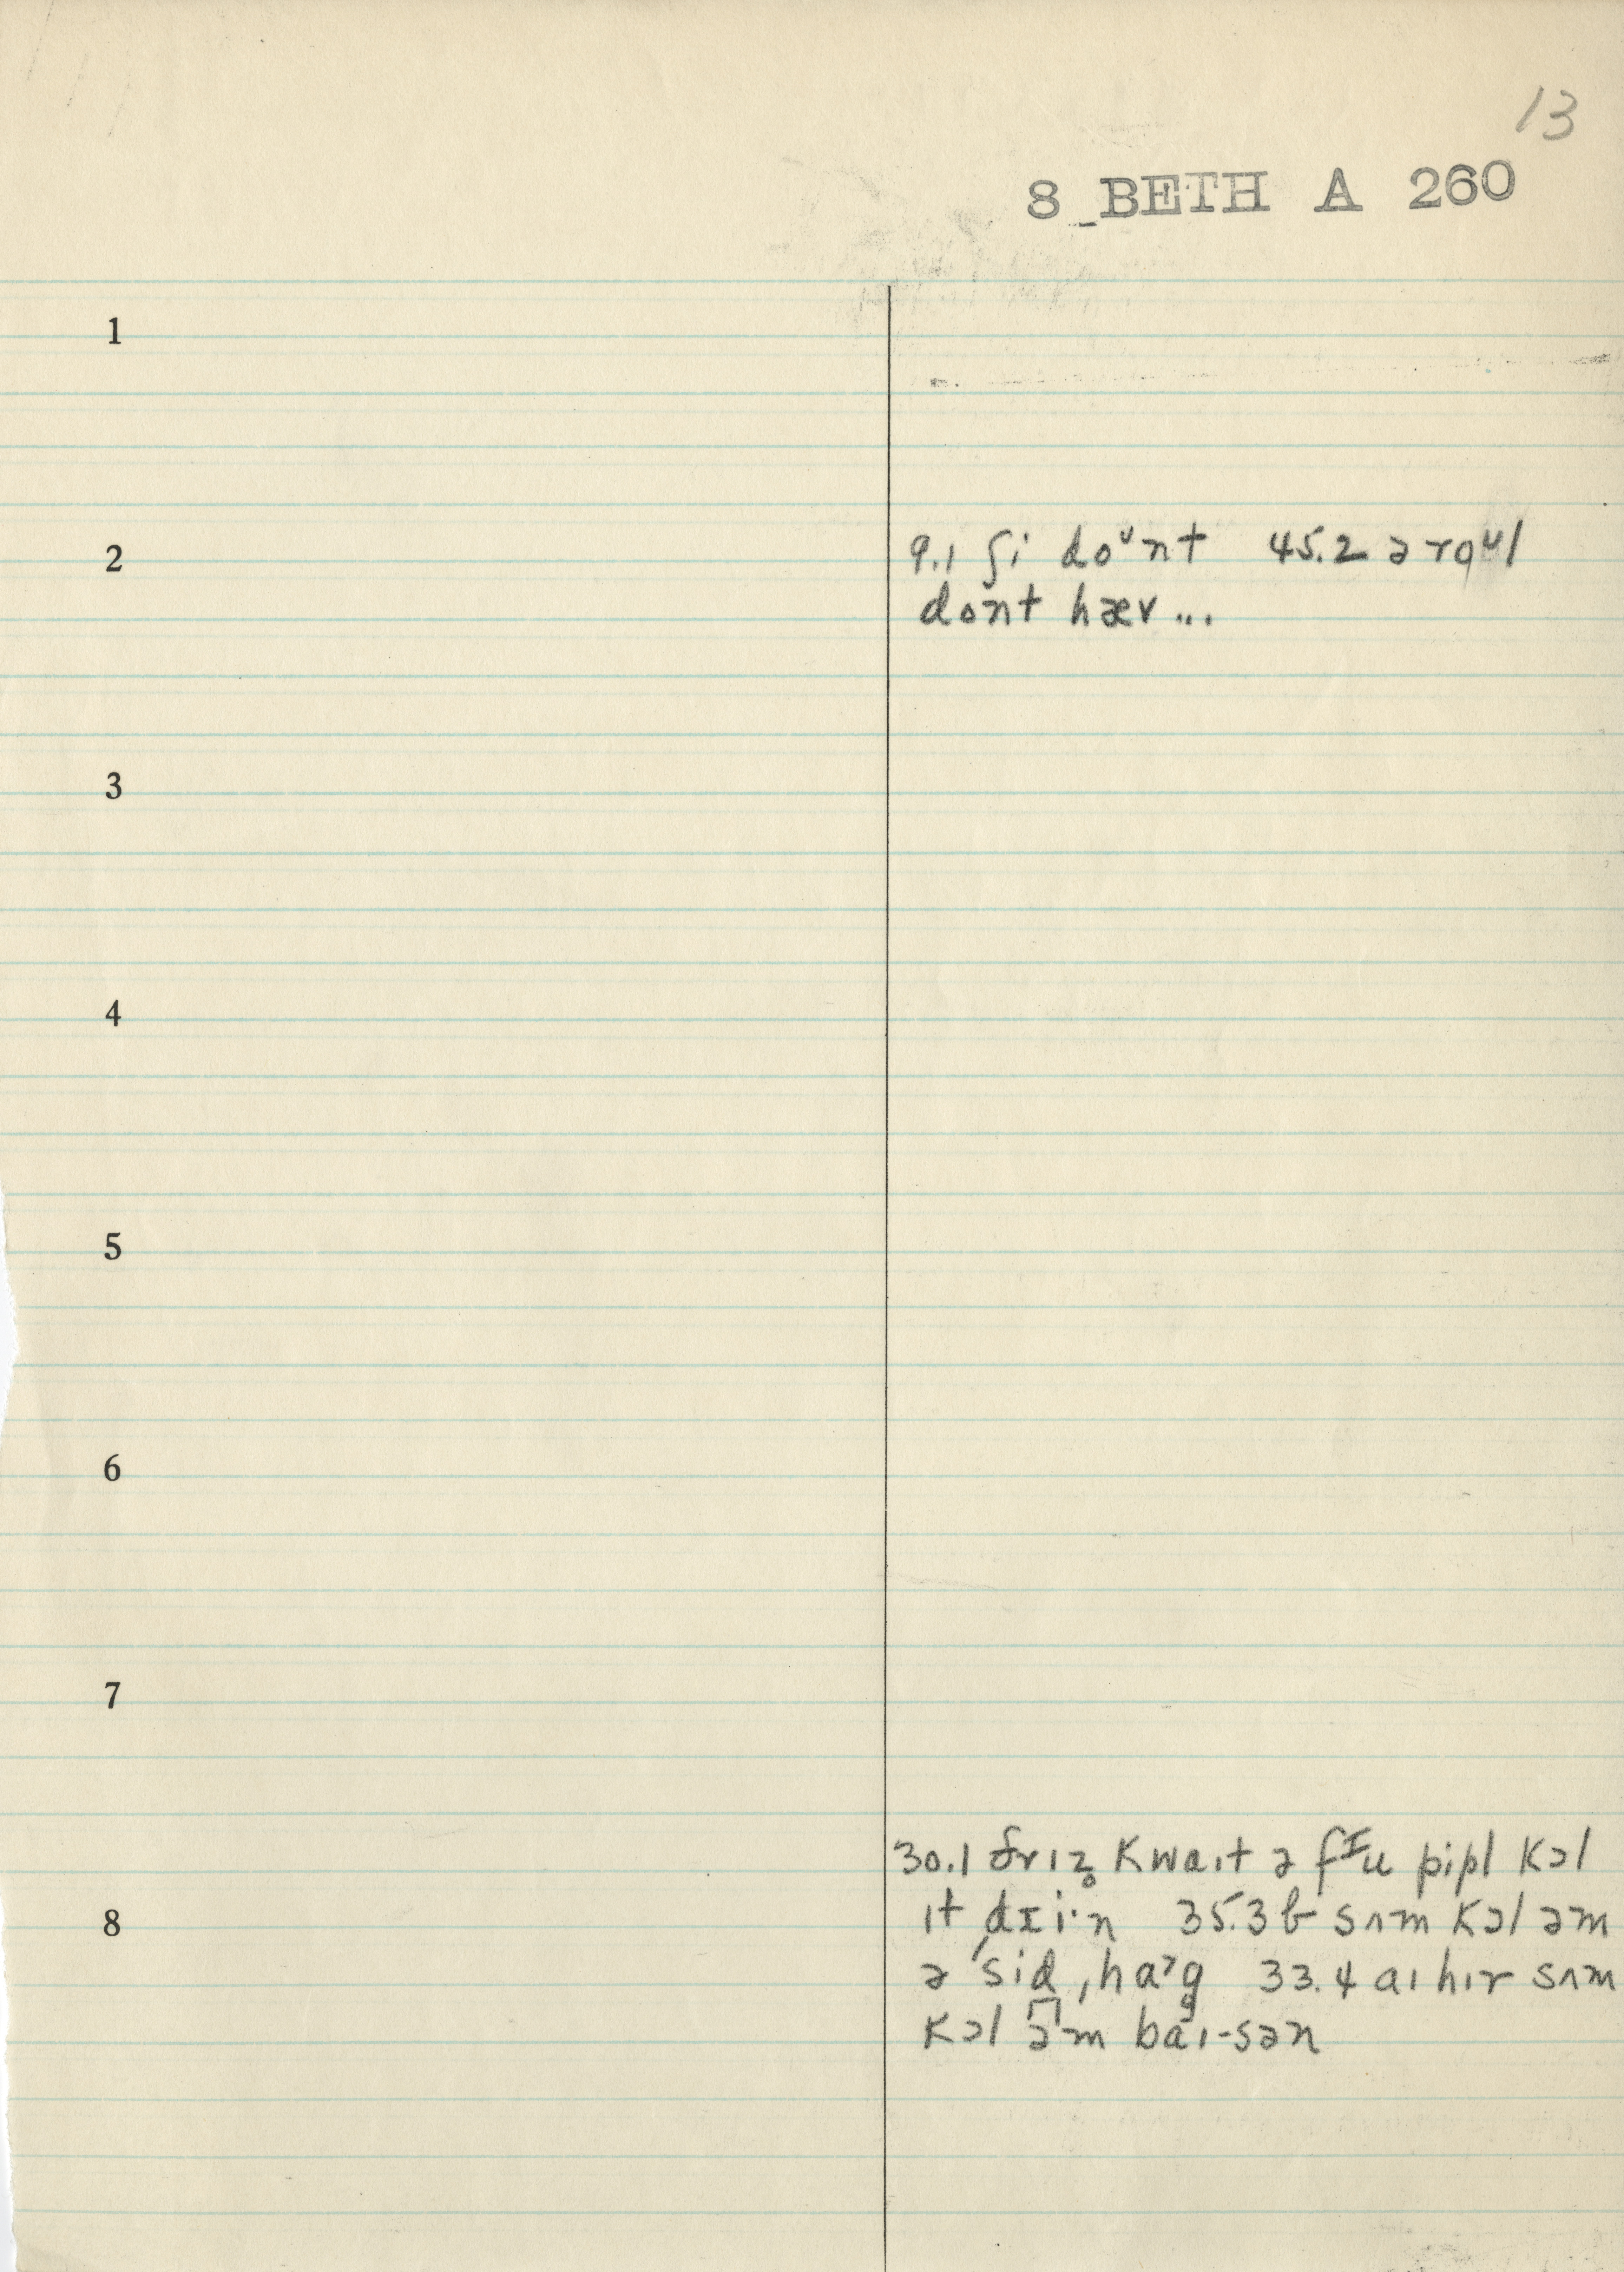 13
8 BETH A 260
1
2
9.1 ʃi doᶷnt 45.2 ə roᶷl
dont hæv...
3
4
5
6
7
30.1 ðɪz̥ kwaɪt ə fᴵu pipl kɔl
8
ɪt 35.3 b sʌm kɔl əm
ə ˈsid ˌhaᵊg 33.4 aɪ hɪr sʌm
kɔl əm baɪ-sən